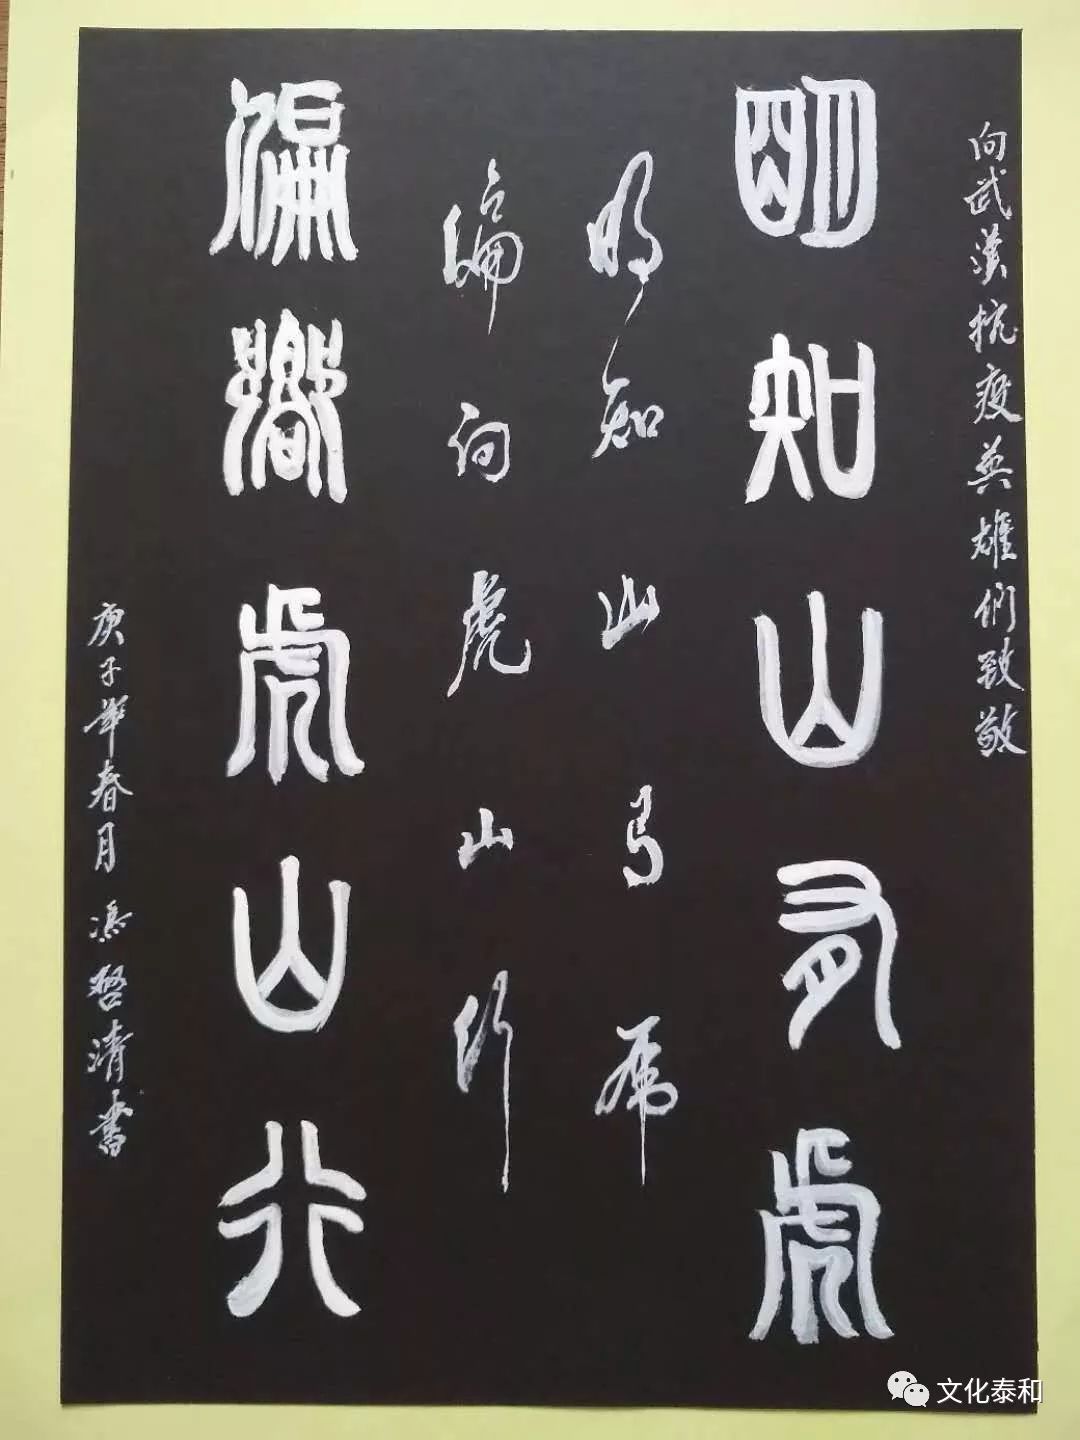 向武漢抗疫英雄們致敬
明知山有虎
明知山有虎
偏向虎山行
偏嚮虎山行
庚子年春月馮啓清書
文化泰和